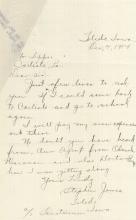 Toledo Iowa
Dec, 7, 1909
Mr. Supt.
Carlisle Pa.
Dear Sir:
Just a few lines to ask
you if I could come back
to Carlisle and go to school
again.
I will pay my own expenses
out there.
No doubt you have heard
from the Agent from
and also
how I was getting along
Yours Truly
Stephen Jones
Toledo
Iowa